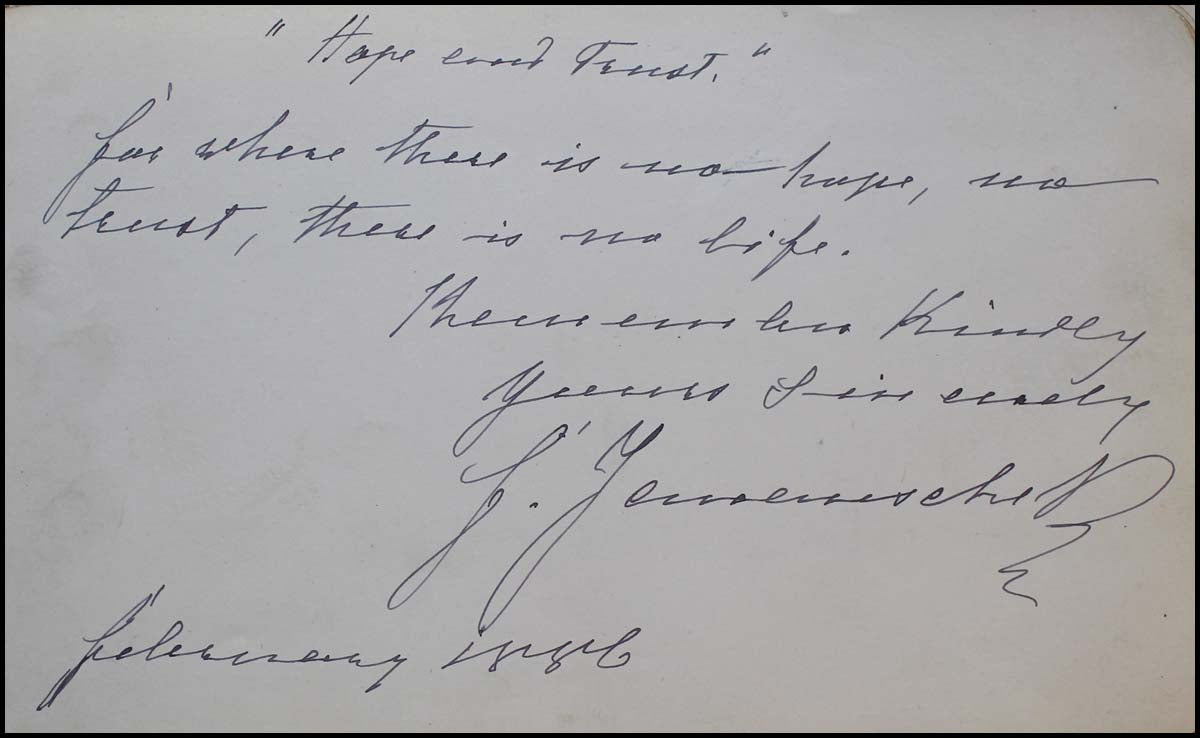 "Hope and Trust."
for where there is no hope, no
trust, there is no life.
Remember Kindly
Yours Sincerely
F. Janauschek
February 1886